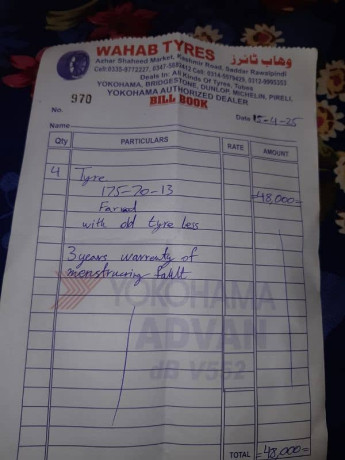 WAHAB TYRES وہاب ٹائرز
Azhar Shaheed Market, Kashmir Road, Saddar Rawalpindi
Deals In: All Kinds Of Tyres, Tubes
YOKOHAMA, BRIDGESTONE, DUNLOP, MICHELIN, PIRELI,
YOKOHAMA AUTHORIZED DEALER
BILL BOOK
No. 970
Date 15-4-25
Name
Qty PARTICULARS RATE AMOUNT
4 Tyre
175-70-13 =48,000=
with old tyre less
3 years warrenty of
fault
YOKOHAMA
ADVAN
dB V552
TOTAL =48,000=